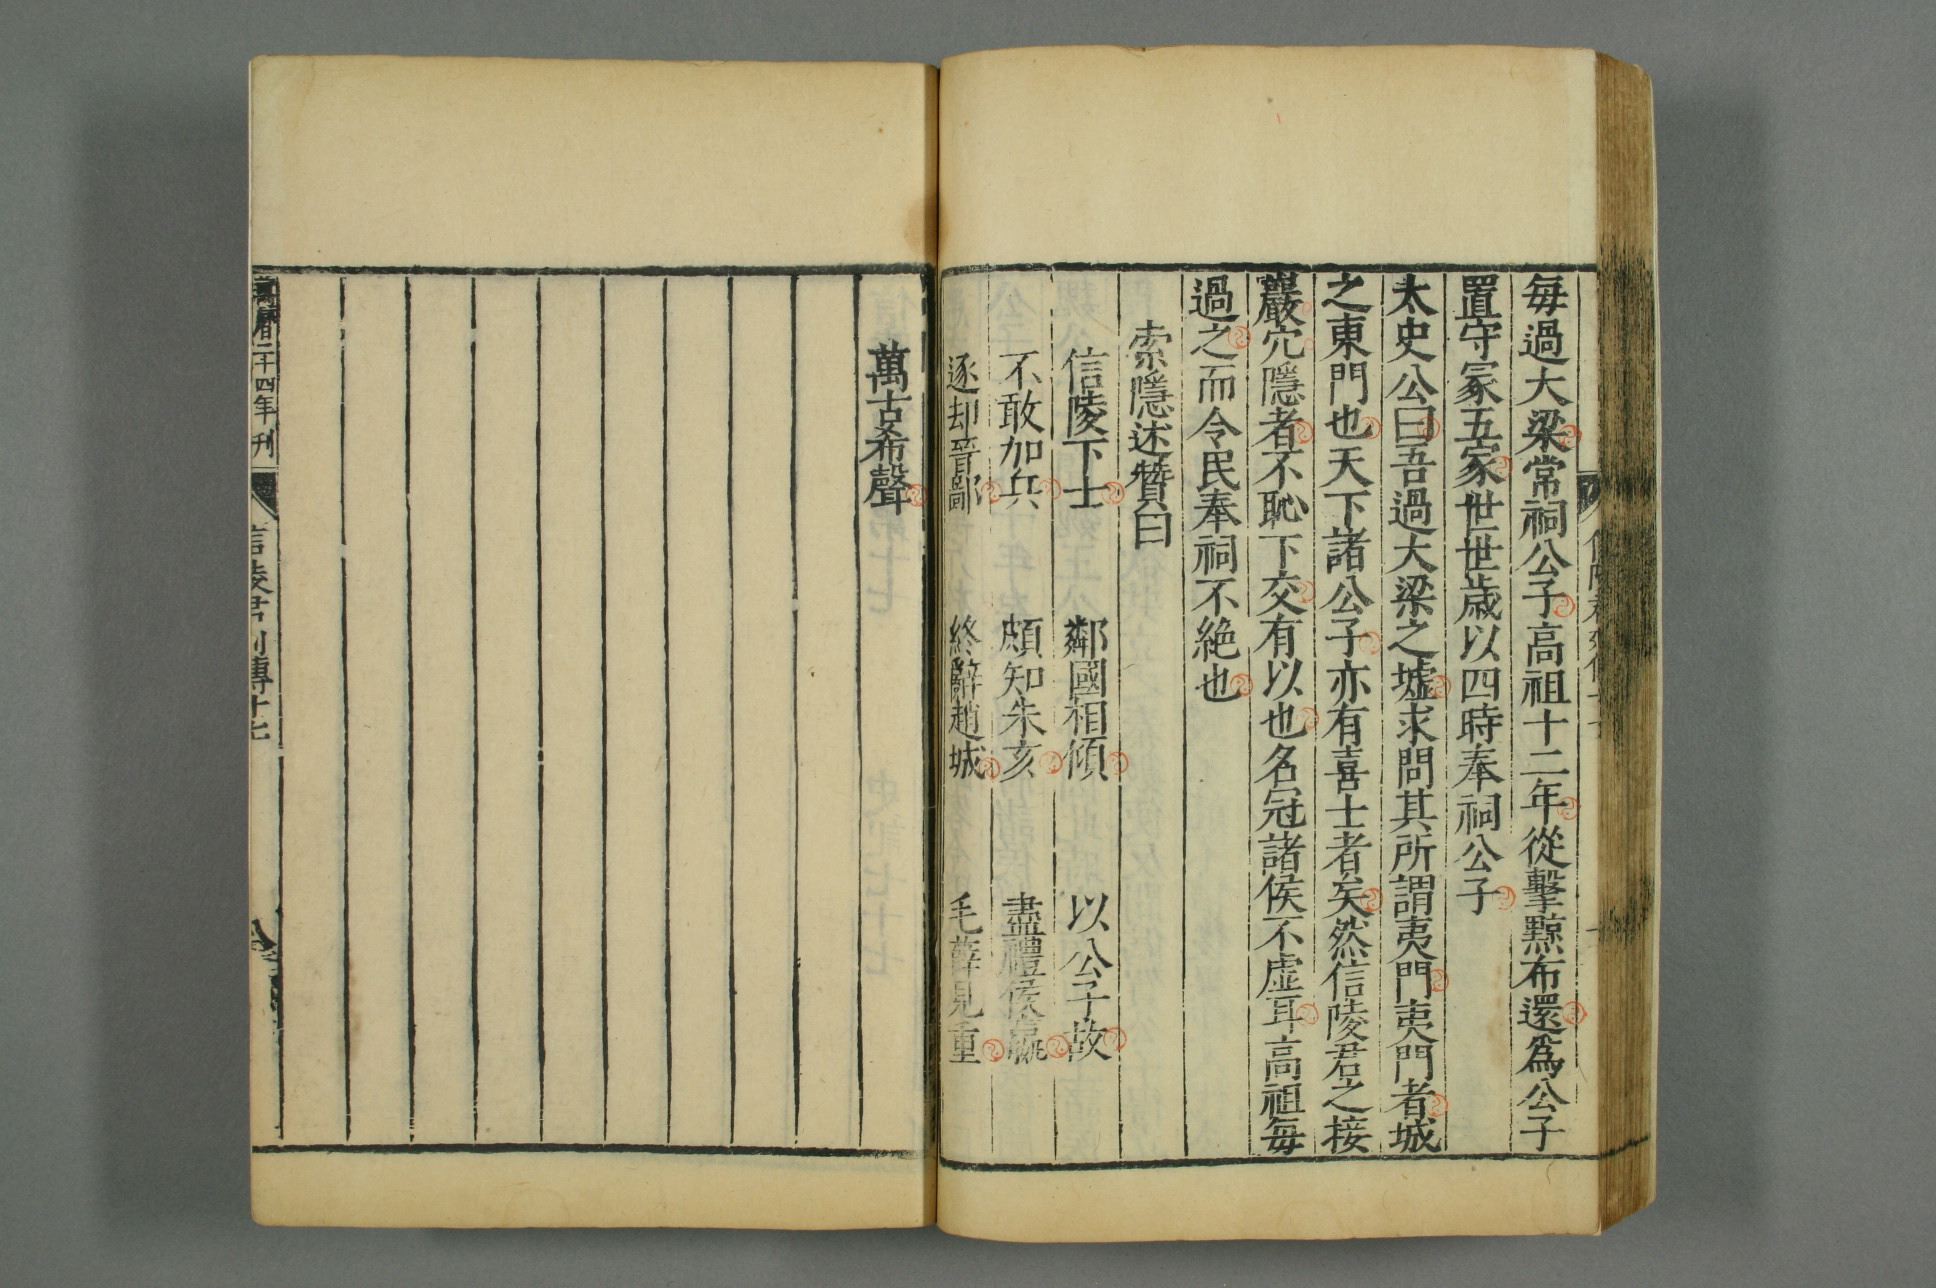 每過大梁常祠公子高祖十二年從擊黥布還爲公子
置守冢五家世世歳以四時奉祠公子
太史公曰吾過大梁之墟求問其所謂夷門夷門者城
之東門也天下諸公子亦有喜士者矣然信陵君之接
巖穴隱者不恥下交有以也名冠諸侯不虛耳高祖每
過之而令民奉祠不絶也
索隱述贊曰
信陵下士 鄰國相傾 以公子故
不敢加兵 頗知朱亥 盡禮侯嬴
逐却晉鄙 終辭趙城 毛薛見重
萬古希聲
萬曆二十四年刊
信陵君列傳十七